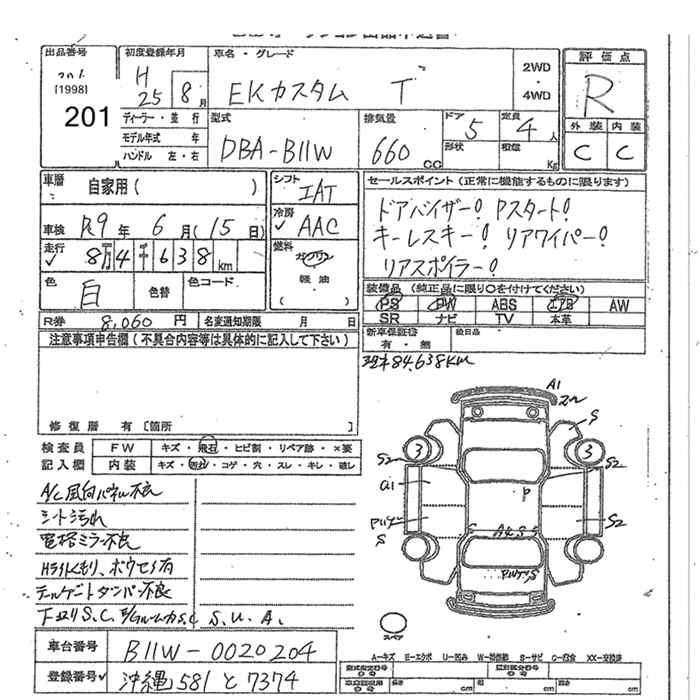 出品番号
[1998]
201
初度登録年月
H
25 8 月
車名・グレード
EKカスタム T
2WD
・
4WD
評価点
R
外装 内装
C C
ディーラー・並行
モデル年式 年
ハンドル 左・右
型式
DBA-B11W
排気量
660 CC
ドア 5
形状
定員 4 人
積載 Kg
車歴 自家用( )
車検 R9 年 6 月(15 日)
走行 8万4千638 km
色 白 色替 色コード
シフト
IAT
冷房
AAC
燃料
ガソリン
軽油
セールスポイント(正常に機能するものに限ります)
ドアバイザー! Pスタート!
キーレスキー! リアワイパー!
リアスポイラー!
装備品(純正品に限り○を付けてください)
PS PW ABS エアB AW
SR ナビ TV 本革
R券 8,060 円 名変通知期限 月 日
新車保証書 後日品
有・無
注意事項申告欄(不具合内容等は具体的に記入して下さい)
現車84,638KM
修復歴 有[箇所 ]
検査員 FW キズ・飛石・ヒビ割・リペア跡・×要
記入欄 内装 キズ・汚れ・コゲ・穴・スレ・キレ・破し
A/C風向パネル不良
シート汚れ
電格ミラー不良
Hライトくもり、ボウセイ有
テールゲートダンパー不良
下廻りS.C, E/GルームカS.C S.U.A.
A1
S
3
3
S2
S2
P
S2
S
スペア
A-キズ E-エクボ U-凹み W-補修跡 S-サビ C-腐食 XX-交換済
車台番号 B11W-0020204
登録番号 沖縄 581 と 7374
cm cm cm